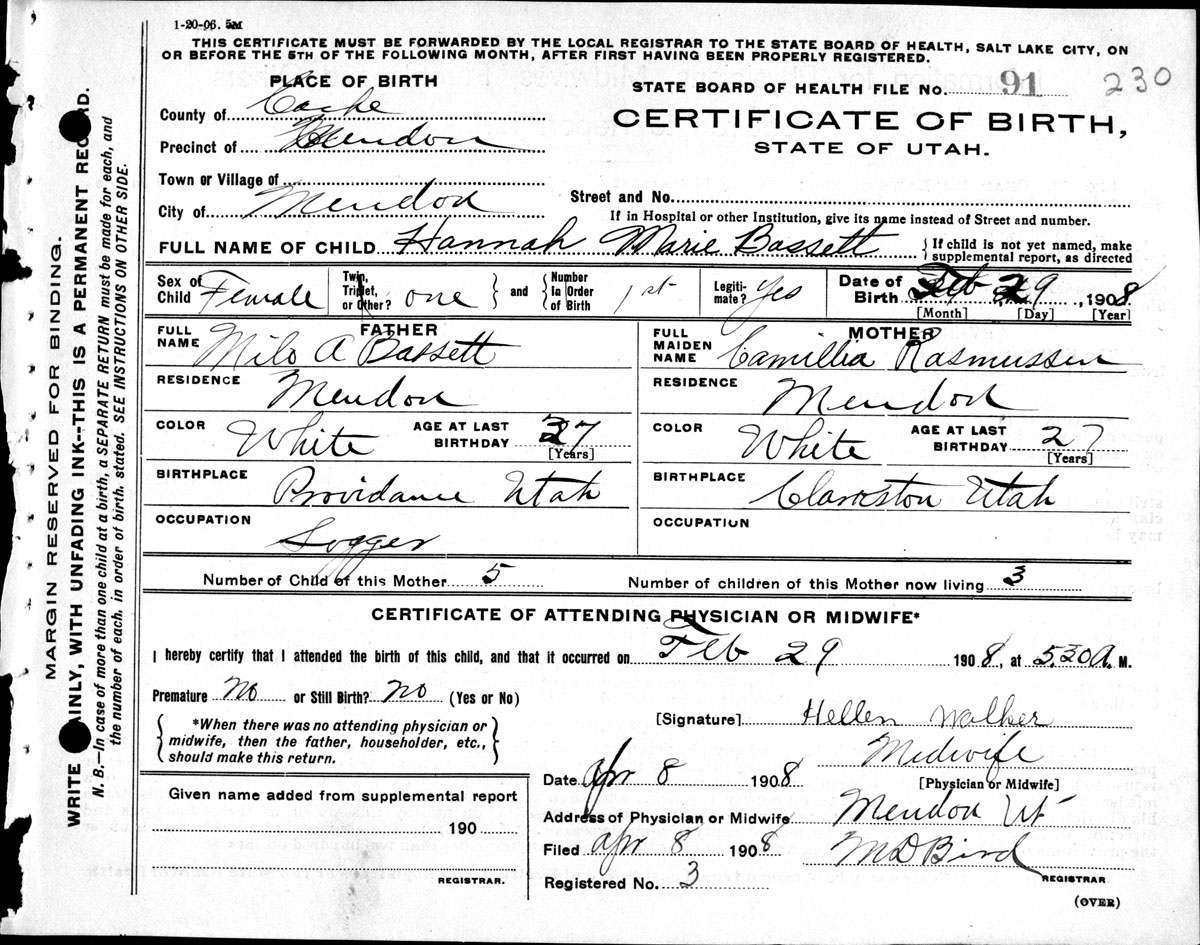 1-20-06. 5M
THIS CERTIFICATE MUST BE FORWARDED BY THE LOCAL REGISTRAR TO THE STATE BOARD OF HEALTH, SALT LAKE CITY, ON
OR BEFORE THE 5TH OF THE FOLLOWING MONTH, AFTER FIRST HAVING BEEN PROPERLY REGISTERED.
PLACE OF BIRTH
STATE BOARD OF HEALTH FILE No. 91 230
County of Cache
CERTIFICATE OF BIRTH,
Precinct of Mendon
STATE OF UTAH.
Town or Village of
Street and No.
City of Mendon
If in Hospital or other Institution, give its name instead of Street and number.
FULL NAME OF CHILD Hannah Marie Bassett { If child is not yet named, make
supplemental report, as directed
Sex of Child Female Twin, Triplet, or Other? one } and { Number In Order of Birth 1st Legiti-mate? Yes Date of Birth Feb 29, 1908
[Month] [Day] [Year]
FATHER
MOTHER
FULL NAME Milo A Bassett
FULL MAIDEN NAME Camillia Rasmussen
RESIDENCE Mendon
RESIDENCE Mendon
COLOR White AGE AT LAST BIRTHDAY 37 [Years]
COLOR White AGE AT LAST BIRTHDAY 27 [Years]
BIRTHPLACE Providance Utah
BIRTHPLACE Clarkston Utah
OCCUPATION Logger
OCCUPATION
Number of Child of this Mother 5 Number of children of this Mother now living 3
CERTIFICATE OF ATTENDING PHYSICIAN OR MIDWIFE*
I hereby certify that I attended the birth of this child, and that it occurred on Feb 29 1908, at 5.30 A. M.
Premature No or Still Birth? No (Yes or No)
[Signature] Hellen Walker
{ *When there was no attending physician or
midwife, then the father, householder, etc.,
should make this return. }
Midwife
Date Apr 8 1908 [Physician or Midwife]
Given name added from supplemental report
190
REGISTRAR.
Address of Physician or Midwife Mendon Ut
Filed Apr 8 1908 M D Bird
REGISTRAR
Registered No. 3
(OVER)
MARGIN RESERVED FOR BINDING.
WRITE PLAINLY, WITH UNFADING INK--THIS IS A PERMANENT RECORD.
N. B.—In case of more than one child at a birth, a SEPARATE RETURN must be made for each, and
the number of each, in order of birth, stated. SEE INSTRUCTIONS ON OTHER SIDE.